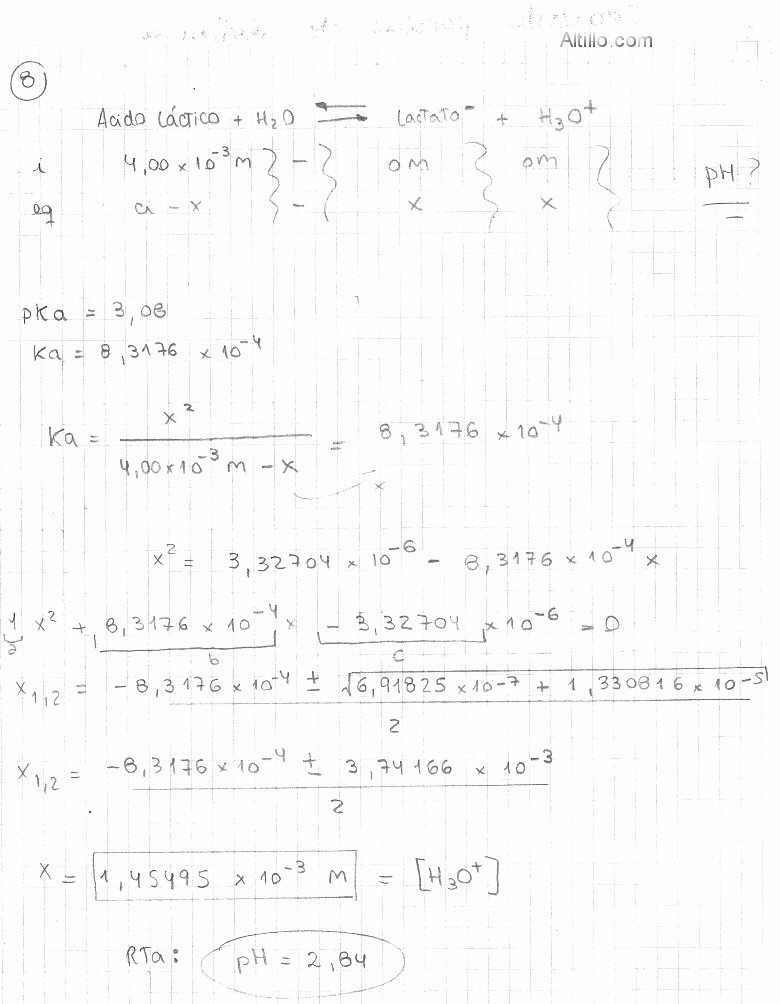 Altillo.com
8
Acido Láctico + H₂O ⇌ Lactato⁻ + H₃O⁺
i 4,00 × 10⁻³ M } - } 0 M } 0 M }
eq a - x } - } x } x }
pH?
pKa = 3,08
Ka = 8,3176 × 10⁻⁴
Ka = x² / (4,00×10⁻³ M - x) = 8,3176 × 10⁻⁴
x
x² = 3,32704 × 10⁻⁶ - 8,3176 × 10⁻⁴ x
1 x² + 8,3176 × 10⁻⁴ x - 3,32704 × 10⁻⁶ = 0
a b c
x₁,₂ = (-8,3176 × 10⁻⁴ ± √(6,91825 × 10⁻⁷ + 1,330816 × 10⁻⁵)) / 2
x₁,₂ = (-8,3176 × 10⁻⁴ ± 3,74166 × 10⁻³) / 2
x = 1,45495 × 10⁻³ M = [H₃O⁺]
RTa: pH = 2,84